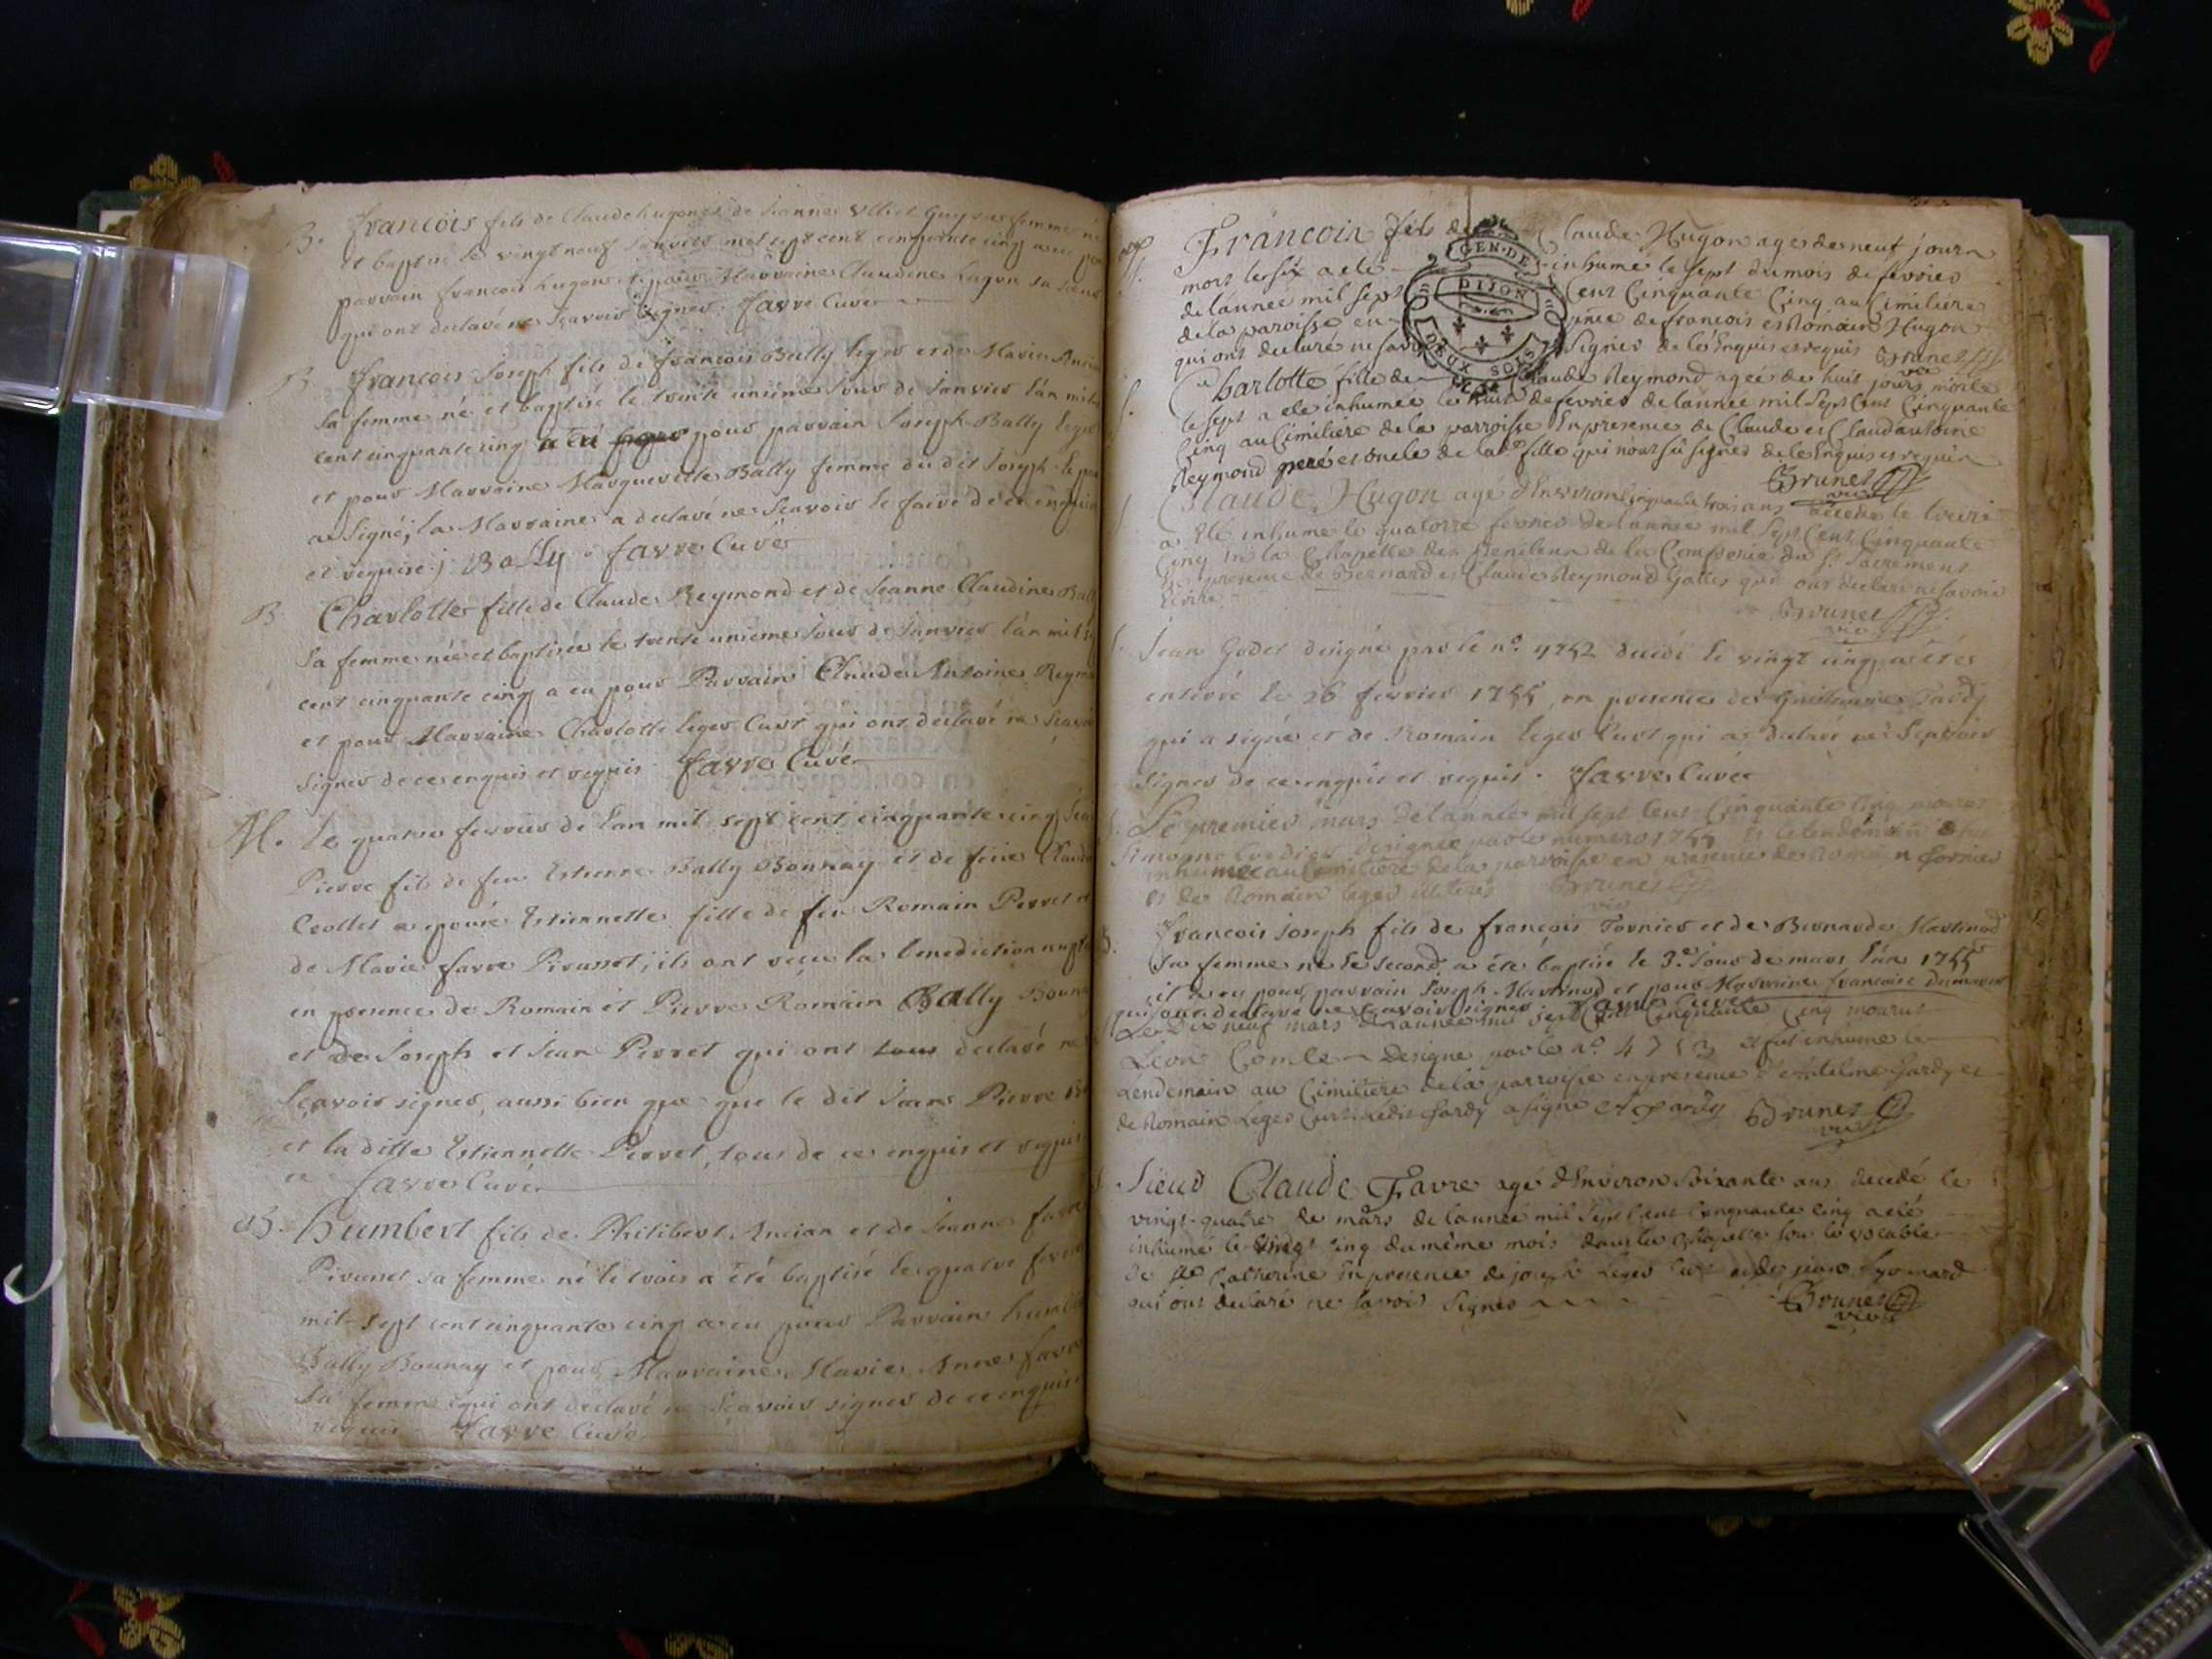 B. francois fils de Claude hugon et de Jeanne Guy sa femme né
et baptisé le vingt neuf Janvier mil sept cent cinquante cinq a eu pour
parrain francois hugon Marraine Claudine hugon sa soeur
qui ont declaré ne Sçavoir signer. favre Curé
B francois Joseph fils de francois Bally leger et de Marie
sa femme né et baptisé le trente unieme Jour de Janvier l'an mil
cent cinquante cinq a eu pour parrain Joseph Bally leger
et pour Marraine Margueritte Bally femme du dit Joseph
a Signé; la Marraine a declaré ne Scavoir le faire de ce enquise
et requise; Bally favre Curé
B Charlotte fille de Claude Reymond et de Jeanne Claudine Bally
sa femme née et baptisée le trente unieme Jour de Janvier l'an mil
cent cinquante cinq a eu pour Parrain Claude Antoine Reymond
et pour Marraine Charlotte leger Curt qui ont declaré ne Scavoir
signer de ce enquis et requis favre Curé
M. le quatre fevrier de l'an mil sept cent cinquante cinq Jean
Pierre fils de feu Estienne Bally Bonnay et de feüe Claudine
Crollet a epousé Estiennette fille de feu Romain Perret et
de Marie favre Pirunet; ils ont reçu la benediction nupt
en presence de Romain et Pierre Romain Bally Bonnay
et de Joseph et Jean Perret qui ont tous declaré ne
Sçavoir signer, aussi bien que que le dit Jean Pierre
et la ditte Estiennette Perret, tous de ce enquis et requis
favre Curé
B. humbert fils de Philibert Ancian et de Jeanne favre
Pirunet sa femme né le trois a été baptisé le quatre fevrier
mil sept cent cinquante cinq a eu pour Parrain humbert
Bally Bounay et pour Marraine Marie Anne favre
sa femme qui ont declaré ne Sçavoir signer de ce enquis
requis favre Curé
Francois fils de Claude Hugon agé de neuf jours
mort le six a été inhumé le sept du mois de fevrier
de lannée mil sept Cent Cinquante Cinq au Cimitiere
de la paroisse en de francois et Romain Hugon
qui ont declaré ne Signer de ce enquis et requis Brunet vic
GEN. DE
DIJON
DEUX SOLS
Charlotte fille de Claude Reymond agée de huit jours morte
le sept a été inhumée le huit de fevrier de lannée mil Sept Cent Cinquante
Cinq au Cimitiere de la parroisse En presence de Claude et Claudantoine
Reymond pere et oncle de la fille qui n'ont sû signer de ce enquis et requis
Brunet vic
Claude Hugon agé d'Environ Cinquante trois ans decedé le treize
a été inhumé le quatorze fevrier de lannée mil Sept Cent Cinquante
Cinq dans la Chapelle des Penitens de la Confrerie du St Sacrement
En presence de Bernard et Claude Reymond Gallet qui ont declaré ne savoir
Ecrire
Brunet vic
Jean Godet designé par le n.o 4752 decedé le vingt cinq a été
enterré le 26 fevrier 1755, en presence de Guillaume Jardy
qui a signé et de Romain leger Curt qui a declaré ne Sçavoir
signer de ce enquis et requis. favre Curé
Le premier mars de lannée mil sept Cent Cinquante Cinq mourut
designée par le numero 1755 et le lendemain a été
inhumée au Cimitiere de la parroisse en presence de Romain fornier
et de Romain leger illiterés Brunet vic
B. francois Joseph fils de françois Fornier et de Bernarde Martinod
sa femme né le second, a été baptisé le 3.e Jour de mars l'an 1755
il a eu pour parrain Joseph Martinod et pour Marraine francoise
qui ont declaré ne Scavoir signer favre Curé
Le Dix neuf mars de lannée mil Sept Cent Cinquante Cinq mourut
Leon Comte designé par le n.o 4753 et fut inhumé le
lendemain au Cimitiere de la parroisse en presence d'Antelme Jardy et
de Romain Leger Curt ledit Jardy a signé Brunet vic
Sieur Claude Favre agé d'Environ Soixante ans decedé le
vingt-quatre de mars de lannée mil Sept Cent Cinquante Cinq a été
inhumé le vingt cinq du même mois dans la Chapelle sou le vocable
de ste Catherine En presence de joseph Leger Curt et de jean
qui ont declaré ne savoir Signer
Brunet vic